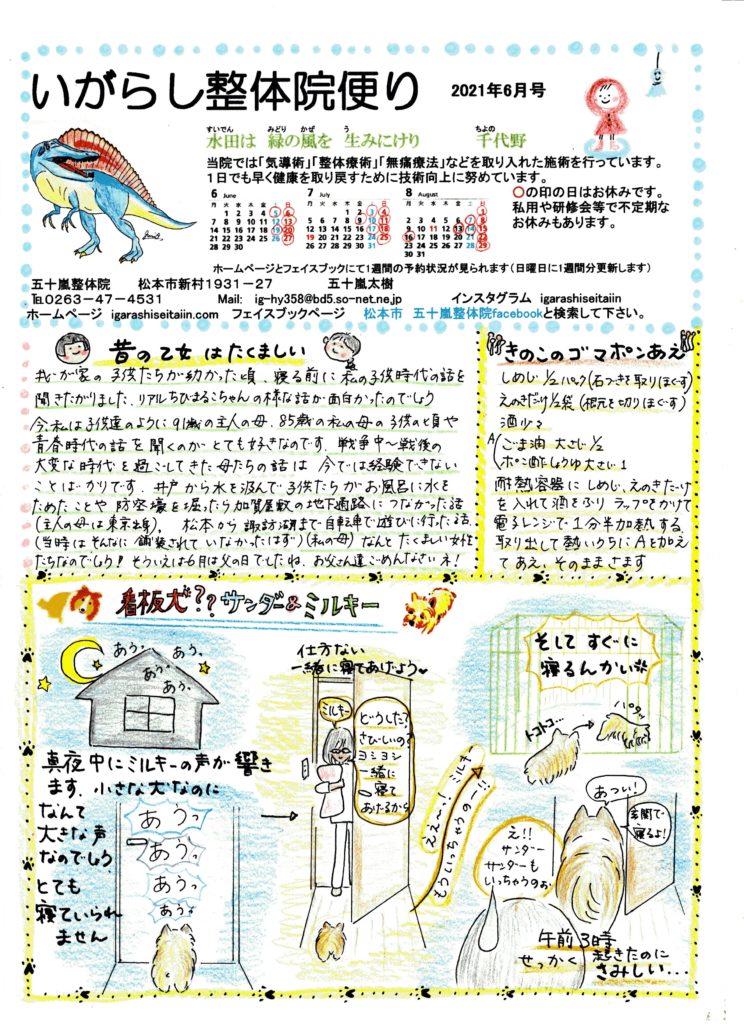 いがらし整体院便り
2021年6月号
すいでん みどり かぜ う ちよの
水田は 緑の風を 生みにけり 千代野
当院では「気導術」「整体療術」「無痛療法」などを取り入れた施術を行っています。
1日でも早く健康を取り戻すために技術向上に努めています。
6 June
月 火 水 木 金 土 日
1 2 3 4 5 6
7 8 9 10 11 12 13
14 15 16 17 18 19 20
21 22 23 24 25 26 27
28 29 30
7 July
月 火 水 木 金 土 日
1 2 3 4
5 6 7 8 9 10 11
12 13 14 15 16 17 18
19 20 21 22 23 24 25
26 27 28 29 30 31
8 August
月 火 水 木 金 土 日
1
2 3 4 5 6 7 8
9 10 11 12 13 14 15
16 17 18 19 20 21 22
23 24 25 26 27 28 29
30 31
○の印の日はお休みです。
私用や研修会等で不定期な
お休みもあります。
ホームページとフェイスブックにて1週間の予約状況が見られます(日曜日に1週間分更新します)
五十嵐整体院 松本市新村1931-27 五十嵐太樹
℡0263-47-4531 Mail: ig-hy358@bd5.so-net.ne.jp インスタグラム igarashiseitaiin
ホームページ igarashiseitaiin.com フェイスブックページ 松本市 五十嵐整体院facebookと検索して下さい。
昔の乙女はたくましい
我が家の子供たちが幼かった頃、寝る前に私の子供時代の話を
聞きたがりました、リアルちびまるこちゃんの様な話が面白かったのでしょう
今、私は子供達のように91歳の主人の母、85歳の私の母の子供の頃や
青春時代の話を聞くのがとても好きなのです、戦争中〜戦後の
大変な時代を過ごしてきた母たちの話は 今では経験できない
ことばかりです。井戸から水を汲んで子供たちがお風呂に水を
ためたことや 防空壕を掘ったら加賀屋敷の地下通路につながった話
(主人の母は東京出身)、 松本から諏訪湖まで自転車で遊びに行った話
(当時はそんなに舗装されていなかったはず)(私の母) なんとたくましい女性
たちなのでしょう! そういえば6月は父の日でしたね、お父さん達ごめんなさいネ!
きのこのゴマポンあえ
しめじ 1/2パック(石づきを取りほぐす)
えのきだけ1/2袋(根元を切りほぐす)
酒少々
A ごま油 大さじ1/2
ポン酢しょうゆ大さじ1
耐熱容器にしめじ、えのきだけ
を入れて酒をふり ラップをかけて
電子レンジで1分半加熱する、
取り出して熱いうちにAを加え
てあえ、そのままさます
看板犬?? サンダー&ミルキー
あう、
あう、
あう、
あう、
真夜中にミルキーの声が響き
ます、小さな犬なのに
なんて
大きな声
なのでしょう
とても
寝ていられ
ません
あうっ
あうっ
あうっ
あうっ
仕方ない
一緒に寝てあげよう♥
ミルキー
どうした?
さびしいの?
ヨシヨシ
一緒に
寝て
あげるから
ええ〜っ! ミルキー
もういっちゃうの〜!!
そして すぐに
寝るんかい
トコトコ…
パタッ
え!!
サンダー
サンダーも
いっちゃうのぉ
あつい!
玄関で
寝るよ!
午前3時
せっかく 起きたのに
さみしい…